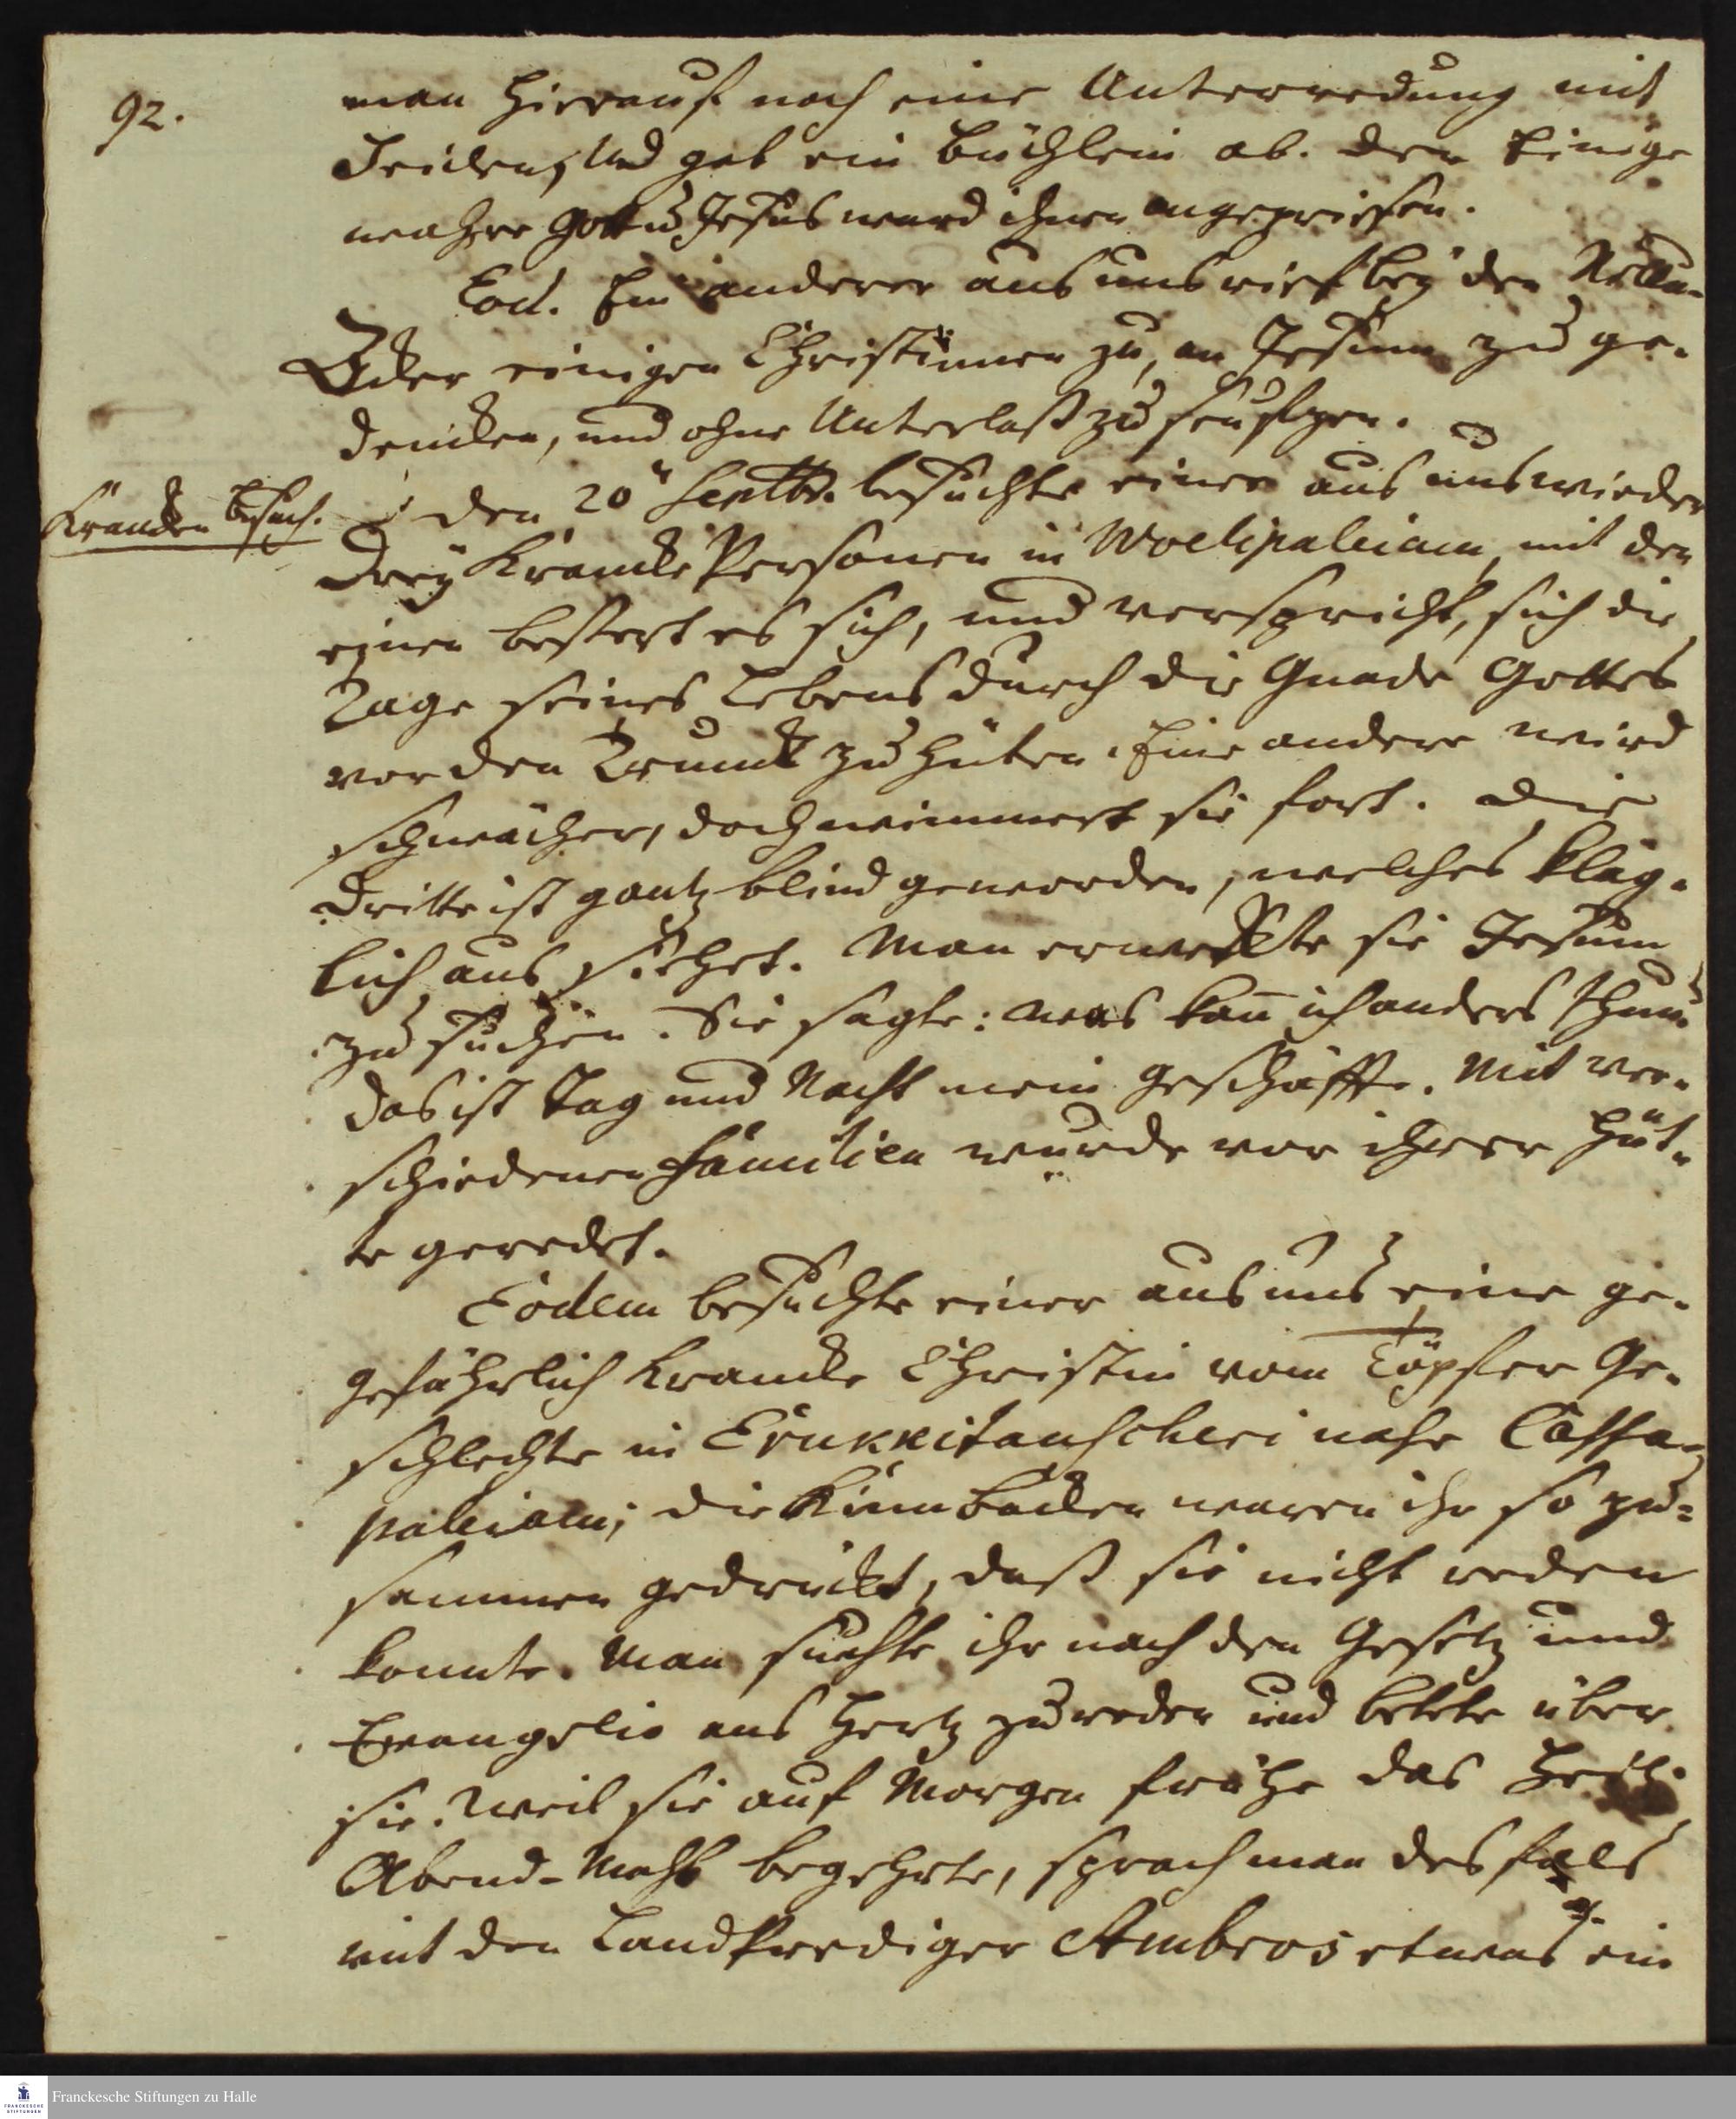 92.
man hierauf noch eine Unterredung mit
Heiden, und gab ein Büchlein ab. der Einige
wahre Gott u. Jesus ward ihnen angepriesen.
Eod. Ein anderer aus uns rief bey den Nellu-
Äcker einigen Christinnen zu, an Jesum zu ge-
dencken, und ohne Unterlaß zu seufzen.
Krancken Besuch.
den 20ⁿ Septbr. besuchte einer aus uns wieder
drey Krancke Personen in Woelipaleiam, mit der
einen bessert es sich, und verspricht, sich die
Tage seines Lebens durch die Gnade Gottes
vor den Trunck zu hüten. Eine andere wird
schwächer, doch wimmert sie fort. die
dritte ist gantz blind geworden, welches kläg-
lich aus siehet. Man erweckte sie Jesum
zu suchen. Sie sagte: was kan̄ ich anders thun?
das ist Tag und Nacht mein Geschäffte. Mit ver-
schiedenen Familien wurde vor ihrer Hüt-
te geredet.
Eodem besuchte einer aus uns eine ge-
gefährlich krancke Christin vom Töpfer Ge-
schlechte in Erukkitanscheri nahe Cassa-
paleiam; die Kinnbacken waren ihr so zu-
sammen gedrückt, daß sie nicht reden
konnte. Man suchte ihr nach den Gesetz und
Evangelio ans Hertz zu reden und betete über
sie. Weil sie auf Morgen frühe das Heil.
Abend-Mahl begehrte, sprach man desfals
mit den Landprediger Ambros etwas ein
Franckesche Stiftungen zu Halle
FRANCKESCHE
STIFTUNGEN